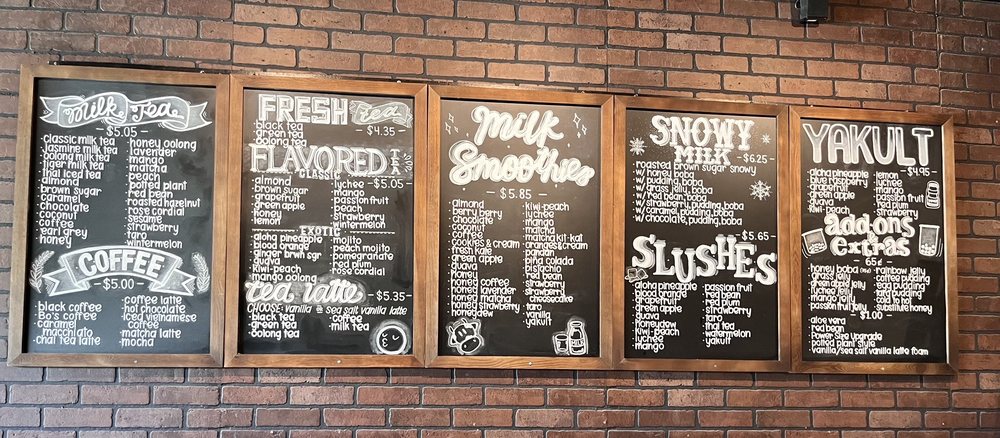 Milk Tea
- $5.05 -
-classic milk tea
-jasmine milk tea
-oolong milk tea
-tiger milk tea
-thai iced tea
-almond
-brown sugar
-caramel
-chocolate
-coconut
-coffee
-earl grey
-honey
-honey oolong
-lavender
-mango
-matcha
-peach
-potted plant
-red bean
-roasted hazelnut
-rose cordial
-sesame
-strawberry
-taro
-wintermelon
COFFEE
- $5.00 -
-black coffee
-bo's coffee
-caramel
macchiato
-chai tea latte
-coffee latte
-hot chocolate
-iced vietnamese
coffee
-matcha latte
-mocha
FRESH tea
- $4.35
-black tea
-green tea
-oolong tea
FLAVORED TEA
CLASSIC
- $5.05
-almond
-brown sugar
-grapefruit
-green apple
-honey
-lemon
-lychee
-mango
-passion fruit
-peach
-strawberry
-wintermelon
EXOTIC
-aloha pineapple
-blood orange
-ginger brwn sgr
-guava
-kiwi-peach
-mango oolong
-mojito
-peach mojito
-pomegranate
-red plum
-rose cordial
tea latte
- $5.35
CHOOSE: vanilla or sea salt vanilla latte
-black tea
-green tea
-oolong tea
-coffee
-milk tea
Milk
Smoothies
- $5.85 -
-almond
-berry berry
-chocolate
-coconut
-coffee
-cookies & cream
-fresh kale
-green apple
-guava
-honey
-honey lavender
-honey matcha
-honey strawberry
-honeydew
-kiwi-peach
-lychee
-mango
-matcha
-matcha kit-kat
-oranges & cream
-pandan
-piña colada
-pistachio
-red bean
-strawberry
-strawberry
cheesecake
-taro
-vanilla
-yakult
SNOWY
MILK
- $6.25
-roasted brown sugar snowy
-w/ honey boba
-w/ pudding, boba
-w/ grass jelly, boba
-w/ red bean, boba
-w/ strawberry, pudding, boba
-w/ caramel, pudding, boba
-w/ chocolate, pudding, boba
- $5.65
SLUSHES
-aloha pineapple
-blood orange
-grapefruit
-green apple
-guava
-honeydew
-kiwi-peach
-lychee
-mango
-passion fruit
-red bean
-red plum
-strawberry
-taro
-thai tea
-watermelon
-yakult
YAKULT
- $4.95
-aloha pineapple
-blue pepberry
-grapefruit
-guava
-kiwi-peach
-lemon
-lychee
-mango
-passion fruit
-red plum
-strawberry
add-ons
& extras
65¢
-honey boba
-grass jelly
-green apple jelly
-lychee jelly
-mango jelly
-passion fruit jelly
-rainbow jelly
-coffee jelly
-egg pudding
-taro pudding
-cold to hot
-substitute honey
- $1.00
-aloe vera
-red bean
-power size upgrade
-potted plant style
-vanilla/sea salt vanilla latte foam